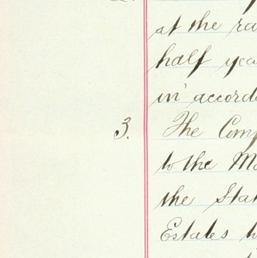 at the ra
half yea
in accord
3. The Comp
to the Ma
the Stat
Estates t